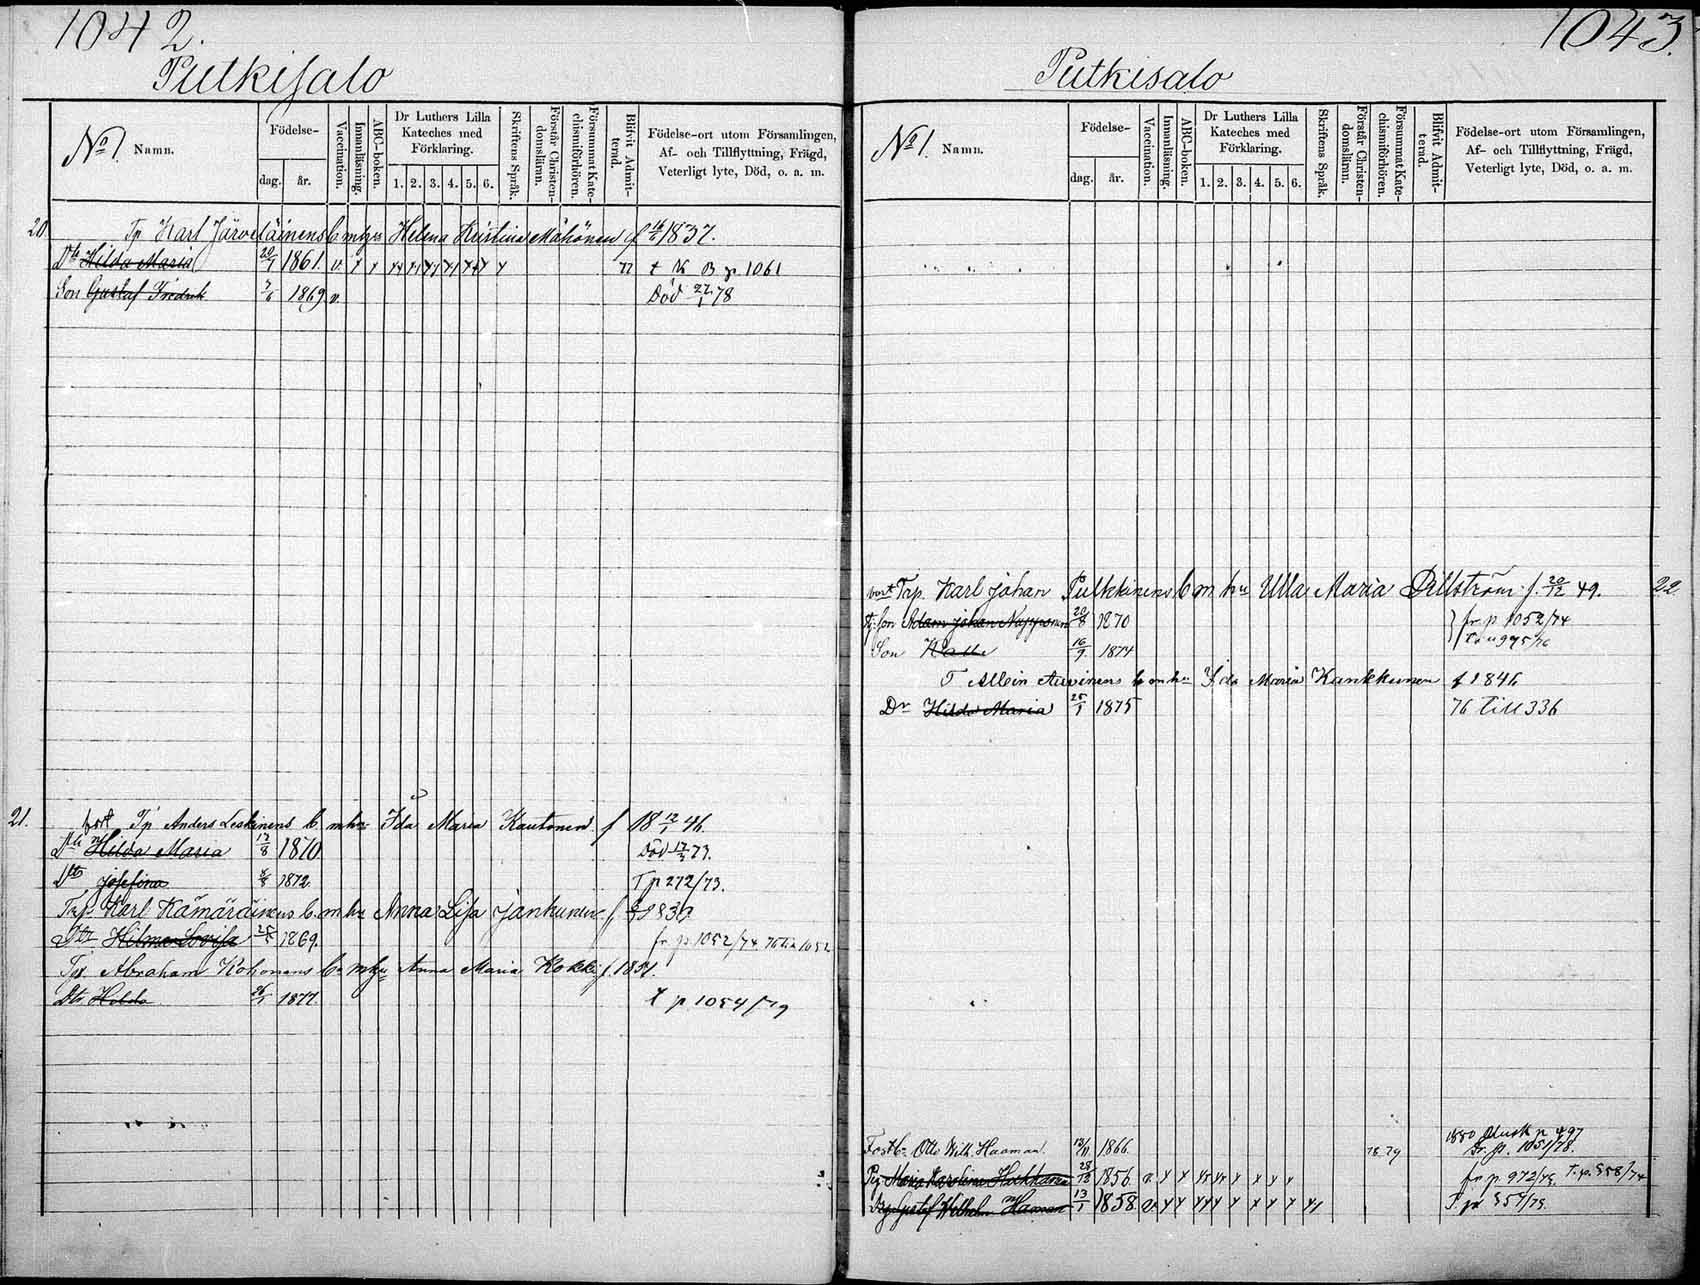 1042.
Putkisalo
No 1. Namn.
Födelse-
dag. år.
Vaccination.
Innanläsning.
ABC-boken.
Dr Luthers Lilla Kateches med Förklaring.
1. 2. 3. 4. 5. 6.
Skriftens Språk.
Förstår Christendomslärnn.
Försummat Katechismiförhören.
Blifvit Admitterad.
Födelse-ort utom Församlingen,
Af- och Tillflyttning, Frägd,
Veterligt lyte, Död, o. a. m.
20. Tp Karl Järveläinens b m hu Helena Kristina Mähönen f 1837.
Dtr Hilda Maria 20/1 1861. v. t K B p 1061
Son Gustaf Fredrik 1869 v. Död 22/1 78
21. bort Tp Anders Leskinens b m hu Ida Maria Kautonen f 18 12/1 46.
Dtr Hilda Maria 13/8 1870 Död 73.
Dtr Josefina 1872. T p 272/73.
Tap. Karl Kämäräinens b. m hu Anna Lisa Jankunen f
Dtr Hilma Lovisa 1869. fr. p. 1052/74 76 till 1052
Tp. Abraham Kohonens b. m hu Anna Maria Kokki f. 1854.
Dtr Hilda 26/1 1877. t p. 1054/79
1043.
Putkisalo
No 1. Namn.
Födelse-
dag. år.
Vaccination.
Innanläsning.
ABC-boken.
Dr Luthers Lilla Kateches med Förklaring.
1. 2. 3. 4. 5. 6.
Skriftens Språk.
Förstår Christendomslärnn.
Försummat Katechismiförhören.
Blifvit Admitterad.
Födelse-ort utom Församlingen,
Af- och Tillflyttning, Frägd,
Veterligt lyte, Död, o. a. m.
bort Tap. Karl Johan Pulkkinens b m hu Ulla Maria Dillström f. 20/12 49. 22.
son Adam Johan 20/8 1870 fr p 1052/74
Son Kalle 16/9. 1874
T Albin Auvinens b m hu Ida Maria Kankkunen f 1846
Dr Hilda Maria 25/1 1875 76 till 336
Otto Wilh. Haaman. 1866. 78.79 1880 p 497 fr. p. 1051/78.
Pig Maria Karolina 28/12 1856 v. fr p. 972/73. T. p. 558/74
Drg Gustaf Wilhelm Haman 13/1 1858 v. T. p.